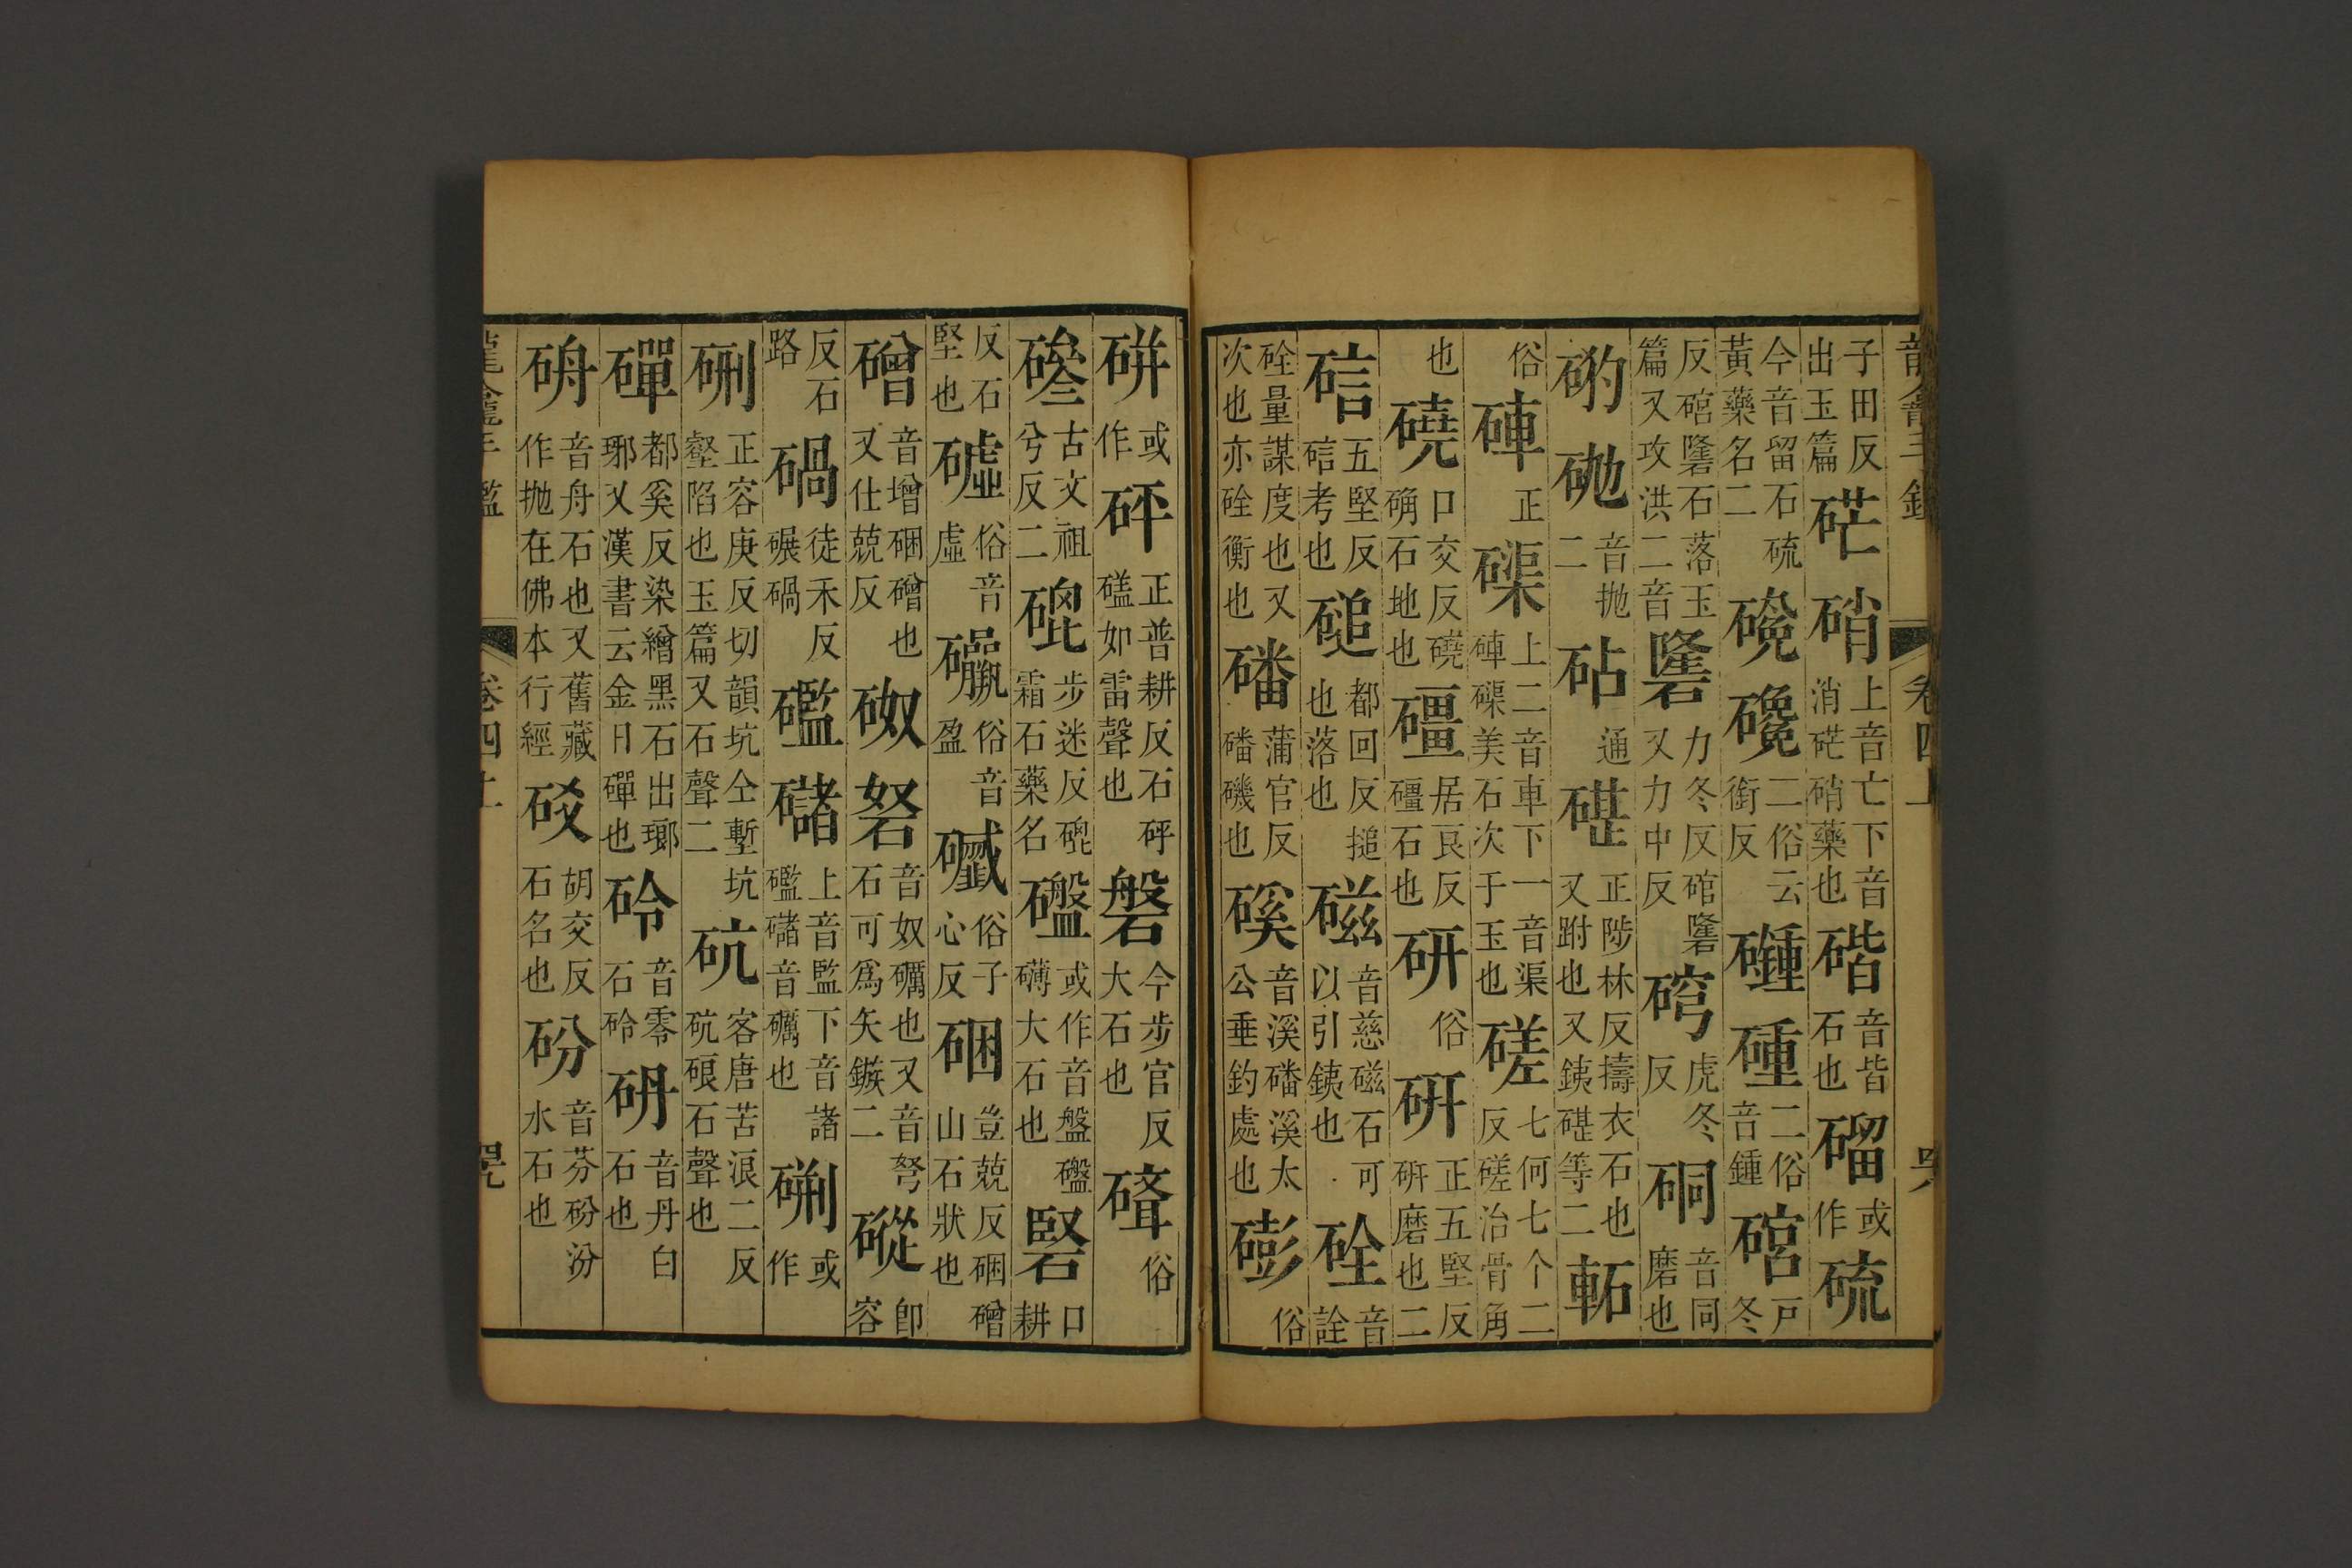 龍龕手鑑 卷四上
子田反出玉篇 硭硝 上音亡下音消硭硝藥也 碏 音皆石也 磂 或作 硫
今音留石硫黃藥名二 二俗云銜反 二俗音鍾 硿 戶冬
反硿䃧石落玉篇又攻洪二音 䃧 力冬反又力中反硿䃧 硿 虎冬反 硐 音同磨也
砲 音拋二 砧 通 碪 正陟林反擣衣石也又跗也又鉄碪等二
俗 硨 正 磲 上二音車下一音渠硨磲美石次于玉也 磋 七何七个二反磋治骨角
也 磽 口交反磽确石地也 礓 居良反礓石也 研 俗 硏 正五堅反硏磨也二
硈 五堅反硈考也 磓 都回反搥也落也 磁 音慈磁石可以引鉄也 硂 音詮
硂量謀度也又次也亦硂衡也 磻 蒲官反磻磯也 磎 音溪磻溪太公垂釣處也 磞 俗
硑 或作 砰 正普耕反石砰磕如雷聲也 磐 今步官反大石也 俗
古文祖兮反二 磇 步迷反磇霜石藥名 或作音盤礴大石也 硻 口耕
反石堅也 俗音虛 俗音盈 俗子心反 硱 豈兢反硱磳山石狀也
磳 音增硱磳也又仕兢反 砮 音奴礪也又音弩石可爲矢鏃二 磫 卽容
反石路 碢 徒禾反碾碢 礛䃴 上音監下音諸礛䃴音礪也 硎 或作
硎 正容庚反切韻坑仝塹坑壑陷也玉篇又石聲二 砊 客唐苦浪二反砊硠石聲也
磾 都奚反染繒黑石出瑯琊又漢書云金日磾也 砱 音零石砱 砃 音丹白石也
音舟石也又舊藏作拋在佛本行經 胡交反石名也 砏 音芬砏汾水石也
龍龕手鑑 卷四上